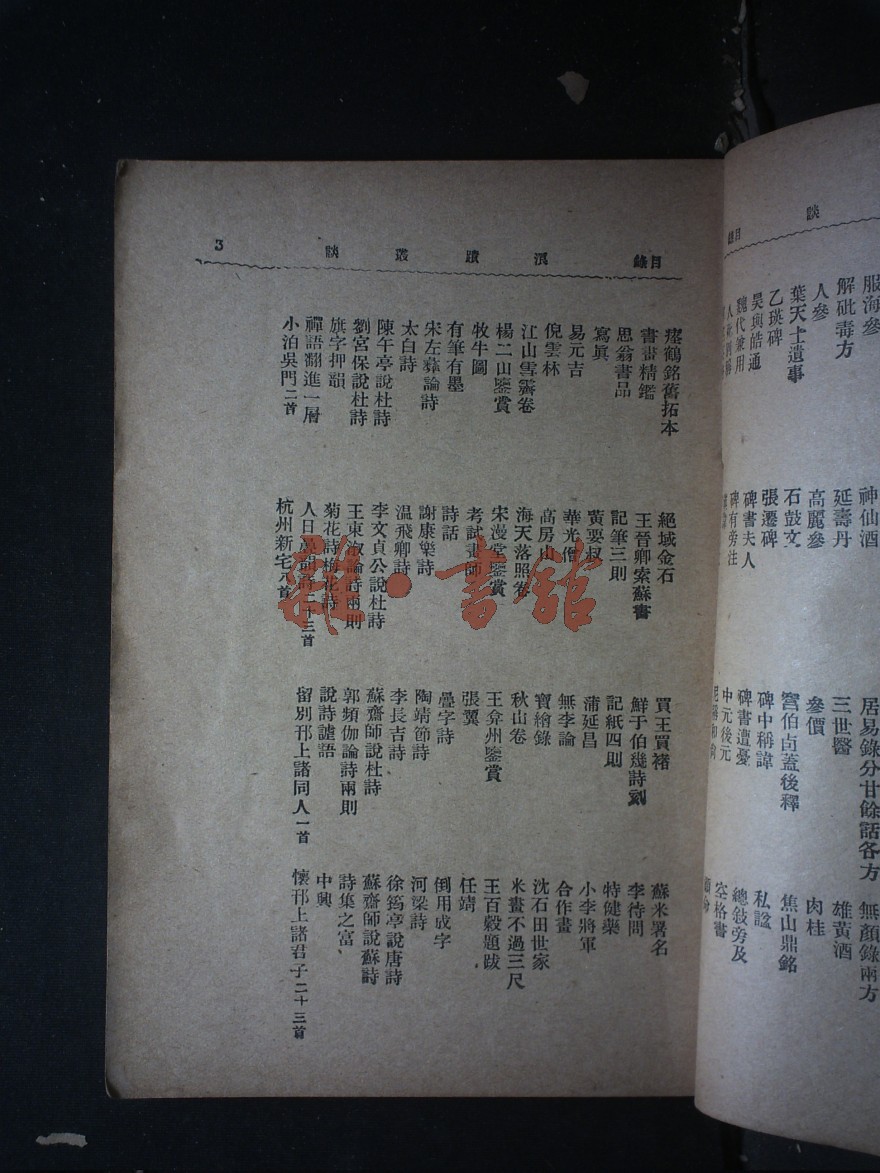 談 目錄
服海參 神仙酒 居易錄分甘餘話各方 無顏錄兩方
解砒毒方 延壽丹 三世醫 雄黃酒
人參 高麗參 參價 肉桂
葉天士遺事 石鼓文 窅伯卣蓋後釋 焦山鼎銘
乙瑛碑 張遷碑 碑中稱諱 私諡
昊與皓通 碑書夫人 碑書遭憂 總敍旁及
魏代兼用 碑有旁注 中元後元 空格書
目錄 浪蹟叢談 3
瘞鶴銘舊拓本 絕域金石 買王買褚 蘇米署名
書畫精鑑 王晉卿索蘇書 鮮于伯幾詩劄 李待問
思翁書品 記筆三則 記紙四則 特健藥
寫眞 黃要叔 蒲延昌 小李將軍
易元吉 華光僧 無李論 合作畫
倪雲林 高房山 寶繪錄 沈石田世家
江山雪霽卷 海天落照卷 秋山卷 米畫不過三尺
楊二山鑒賞 宋漫堂鑒賞 王弇州鑒賞 王百穀題跋
牧牛圖 考試畫師 張翼 任靖
有筆有墨 詩話 疊字詩 倒用成字
宋左彝論詩 謝康樂詩 陶靖節詩 河梁詩
太白詩 溫飛卿詩 李長吉詩 徐筠亭說唐詩
陳午亭說杜詩 李文貞公說杜詩 蘇齋師說杜詩 蘇齋師說蘇詩
劉宮保說杜詩 王東溆論詩兩則 郭頻伽論詩兩則 詩集之富、
旗字押韻 菊花詩梅花詩 說詩謔語 中興
禪語翻進一層 人日疊韻詩二十三首 留別邗上諸同人一首 懷邗上諸君子二十三首
小泊吳門二首 杭州新宅八首
雜·書館